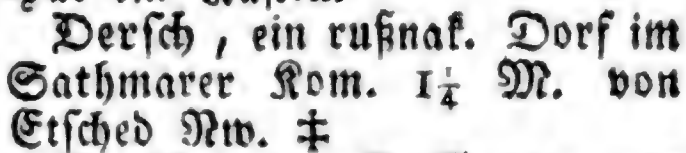 Dersch, ein rußnak. Dorf im
Sathmarer Kom. 1¼ M. von
Etsched Nw. ‡